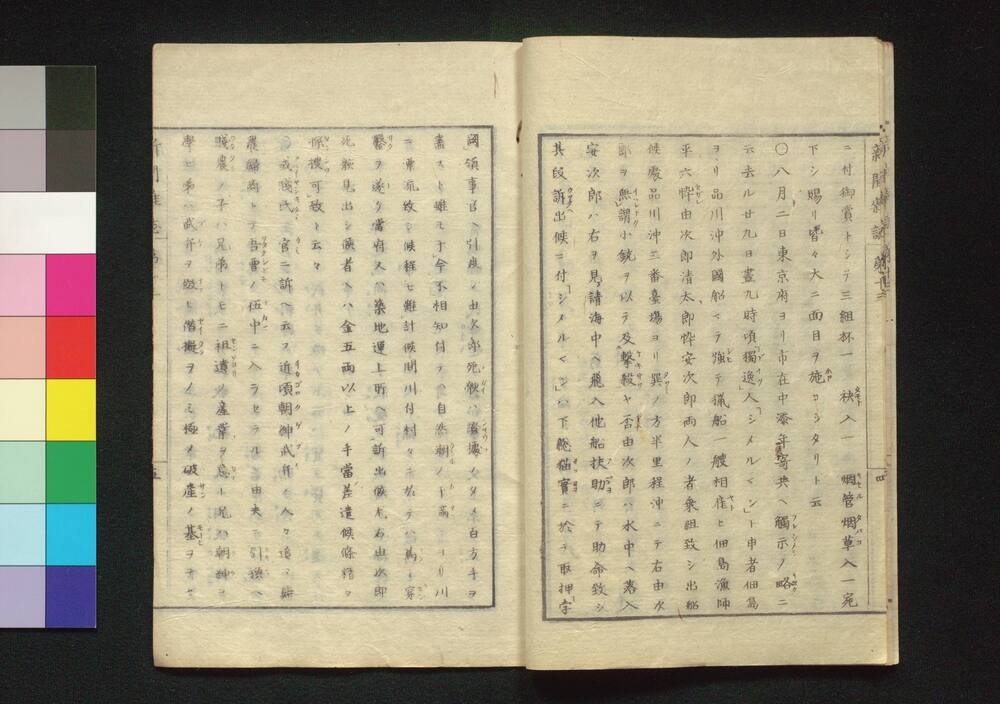 新聞雑誌 第十三
四
ニ付御賞トシテ三組杯一 袂入一 烟管烟草入一宛
下シ賜リ皆々大ニ面目ヲ施コシタリト云
〇八月二日東京府ヨリ市在中添年寄共ヘ觸示ノ略ニ
云去ル廿九日晝九時頃獨逸人「シメルマン」ト申者佃島
ヨリ品川沖外國船マテ強テ猟船一艘相雇ヒ佃島漁師
平六悴由次郎清太郎悴安次郎両人ノ者乗組致シ出船
候處品川沖三番臺場ヨリ巽ノ方半里程沖ニテ右由次
郎ヲ無謂小銃ヲ以テ及撃殺ヤ否由次郎ハ水中ヘ落入
安次郎ハ右ヲ見請海中ヘ飛入他船扶助ニテ助命致シ
其段訴出候ニ付「シメルマン」ハ下総猫實ニ於テ取押字
國領事官ヘ引渡ノ由次郎死骸捜ノタメ百方手ヲ
盡スト雖モ于今不相知付テハ自然潮ノ干満ニヨリ川
々ヘ漂流致シ候程モ難計候間川付村々ニ於テ篤ト穿
鑿ヲ遂ケ當府又ハ築地運上所ヘ可訴出候尤右由次郎
死骸見出シ候者ヘハ金五両以上ノ手當差遣候條精々
探捜可致ト云々
〇或賤氏官ニ訴ヘ云フ近頃朝紳武弁ノ人々追々娼
農歸商シテ吾曹ノ伍中ニ入ラセラル由夫レ引換ヘ
賤農ノ子ハ兄弟トモニ祖遺ノ産業ヲ忘レ兄ハ朝紳ヲ
學ヒ弟ハ武弁ヲ效ヒ僭擬ヲノミ極メ破産ノ基ヲナセ
五